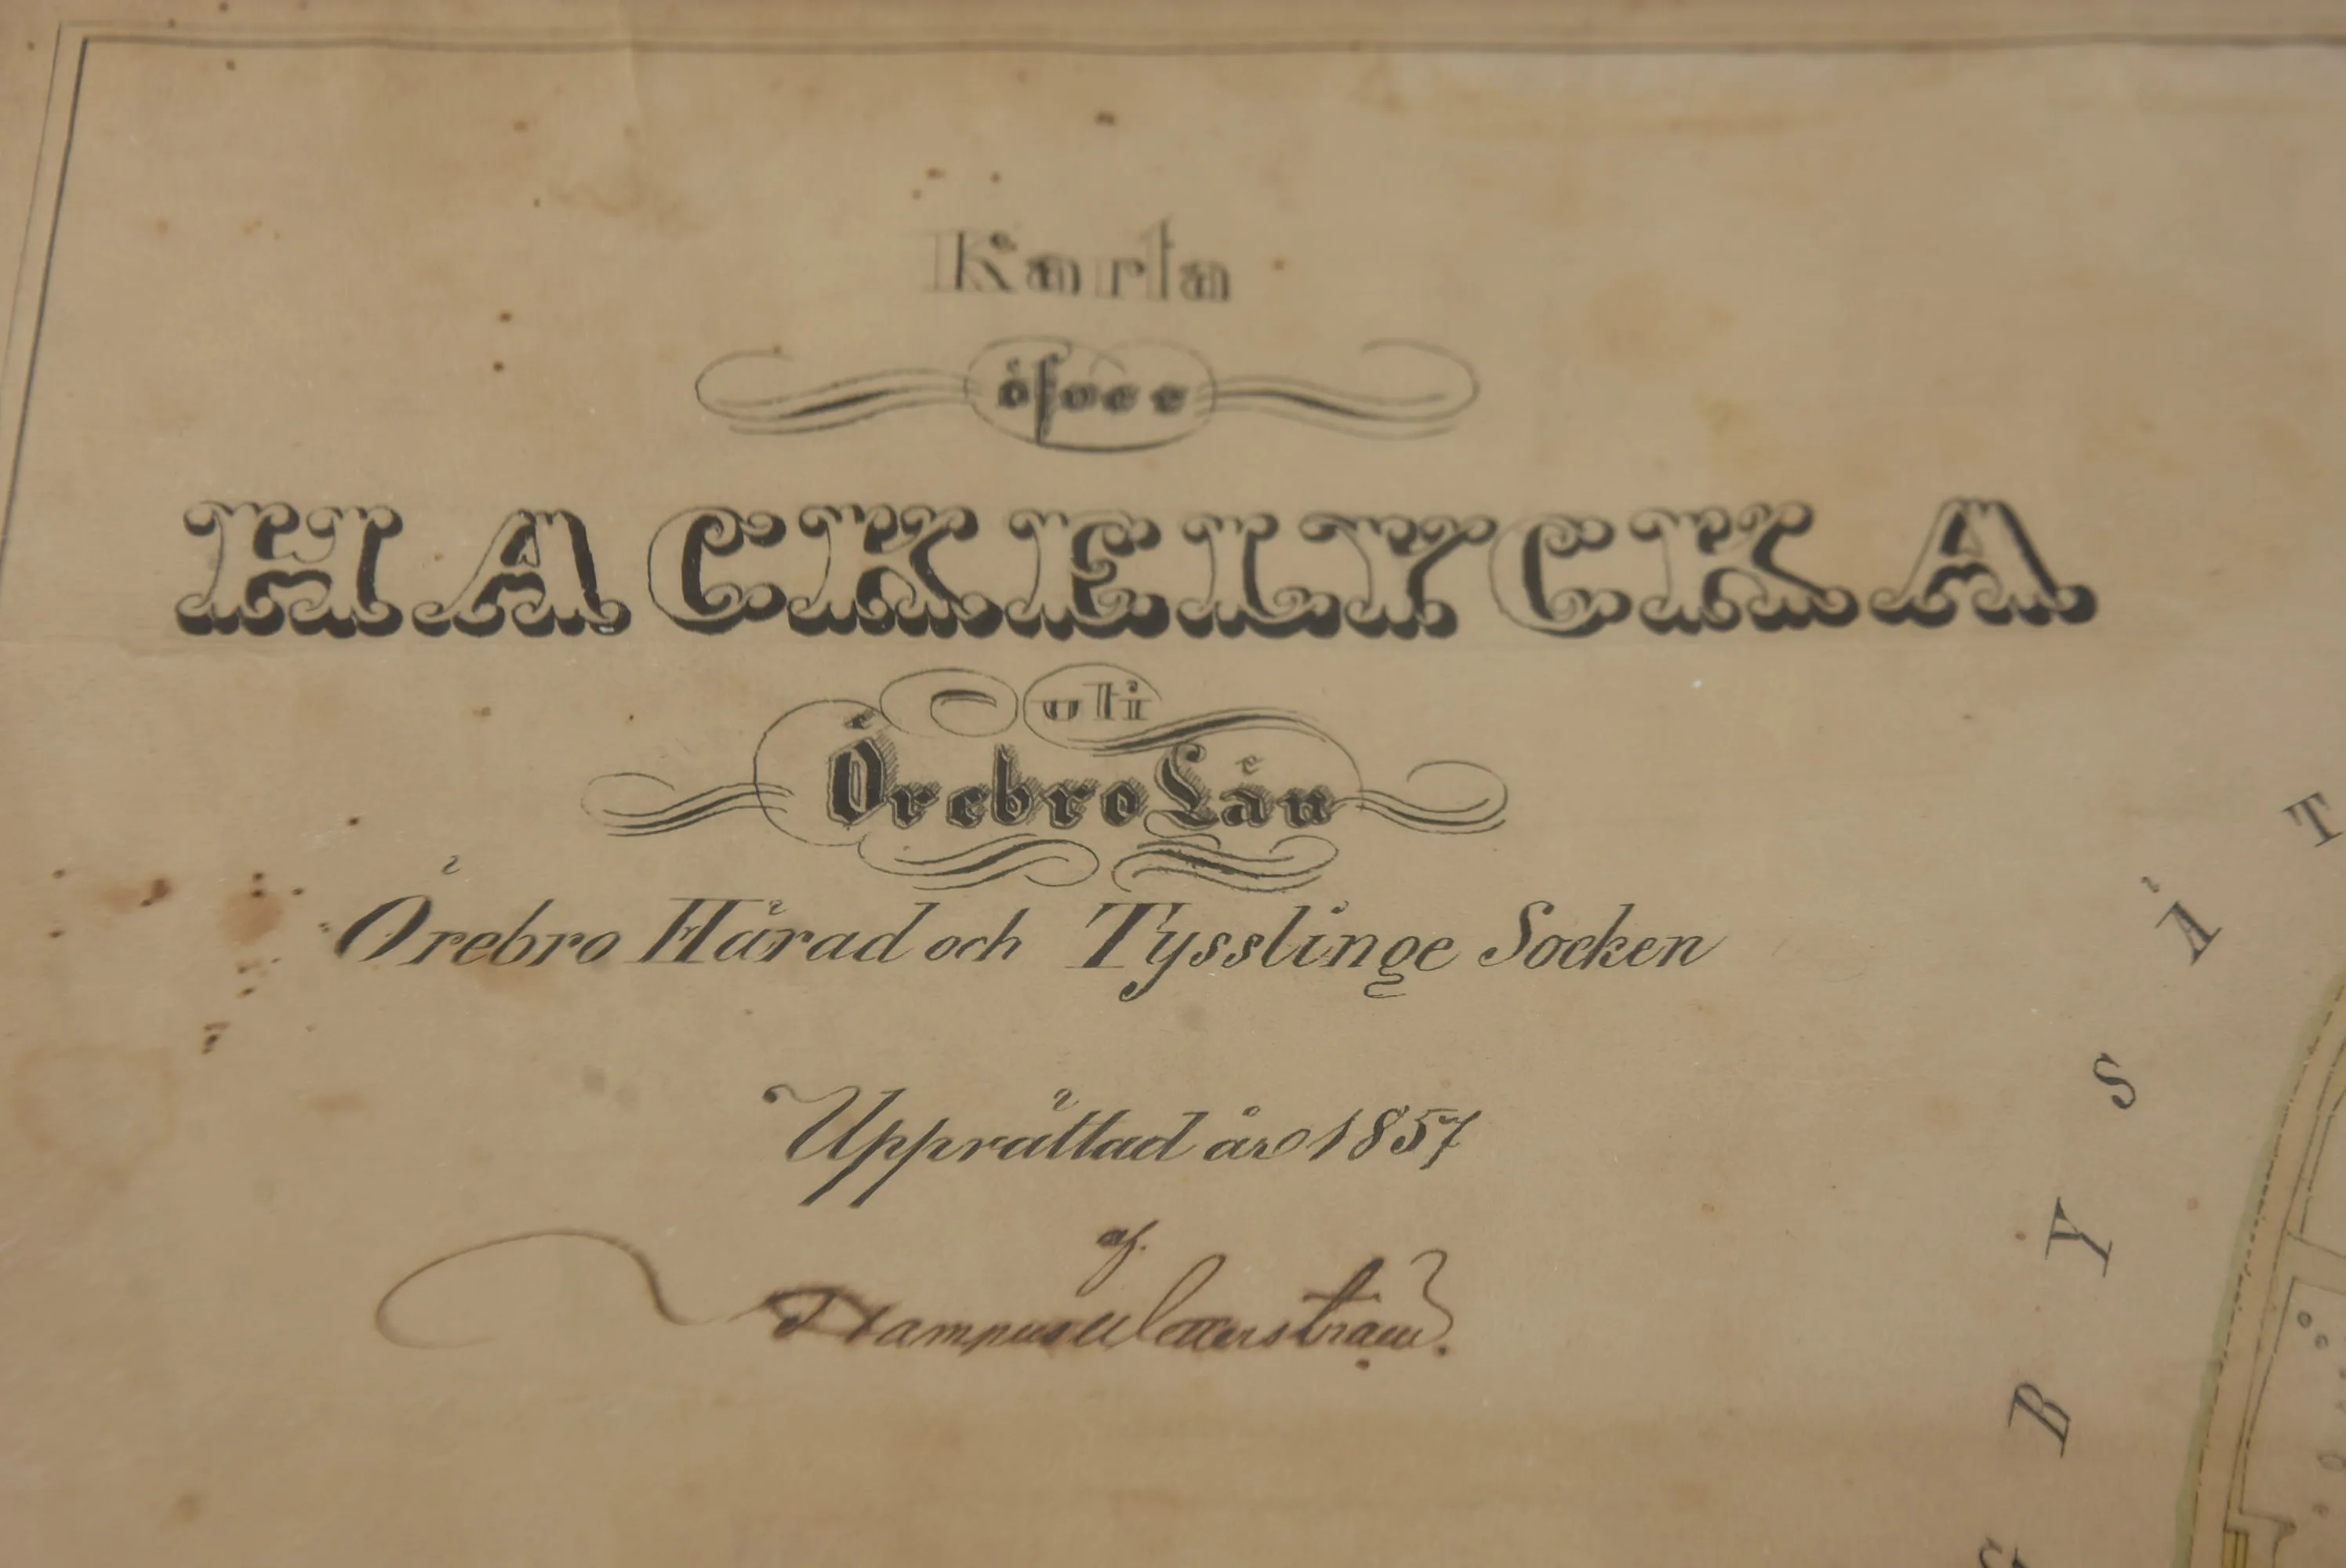 Karta
öfver
HACKELYCKA
uti
Örebro Län
Örebro Härad och Tysslinge Socken
Upprättad år 1857
af
Hampus
BYSÄT